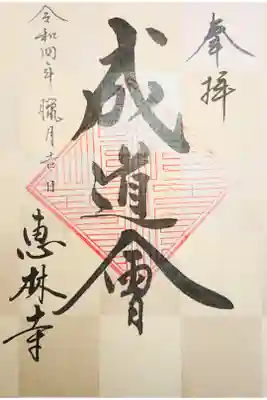 奉拝
成道會
令和四年 臘月吉日
恵林寺